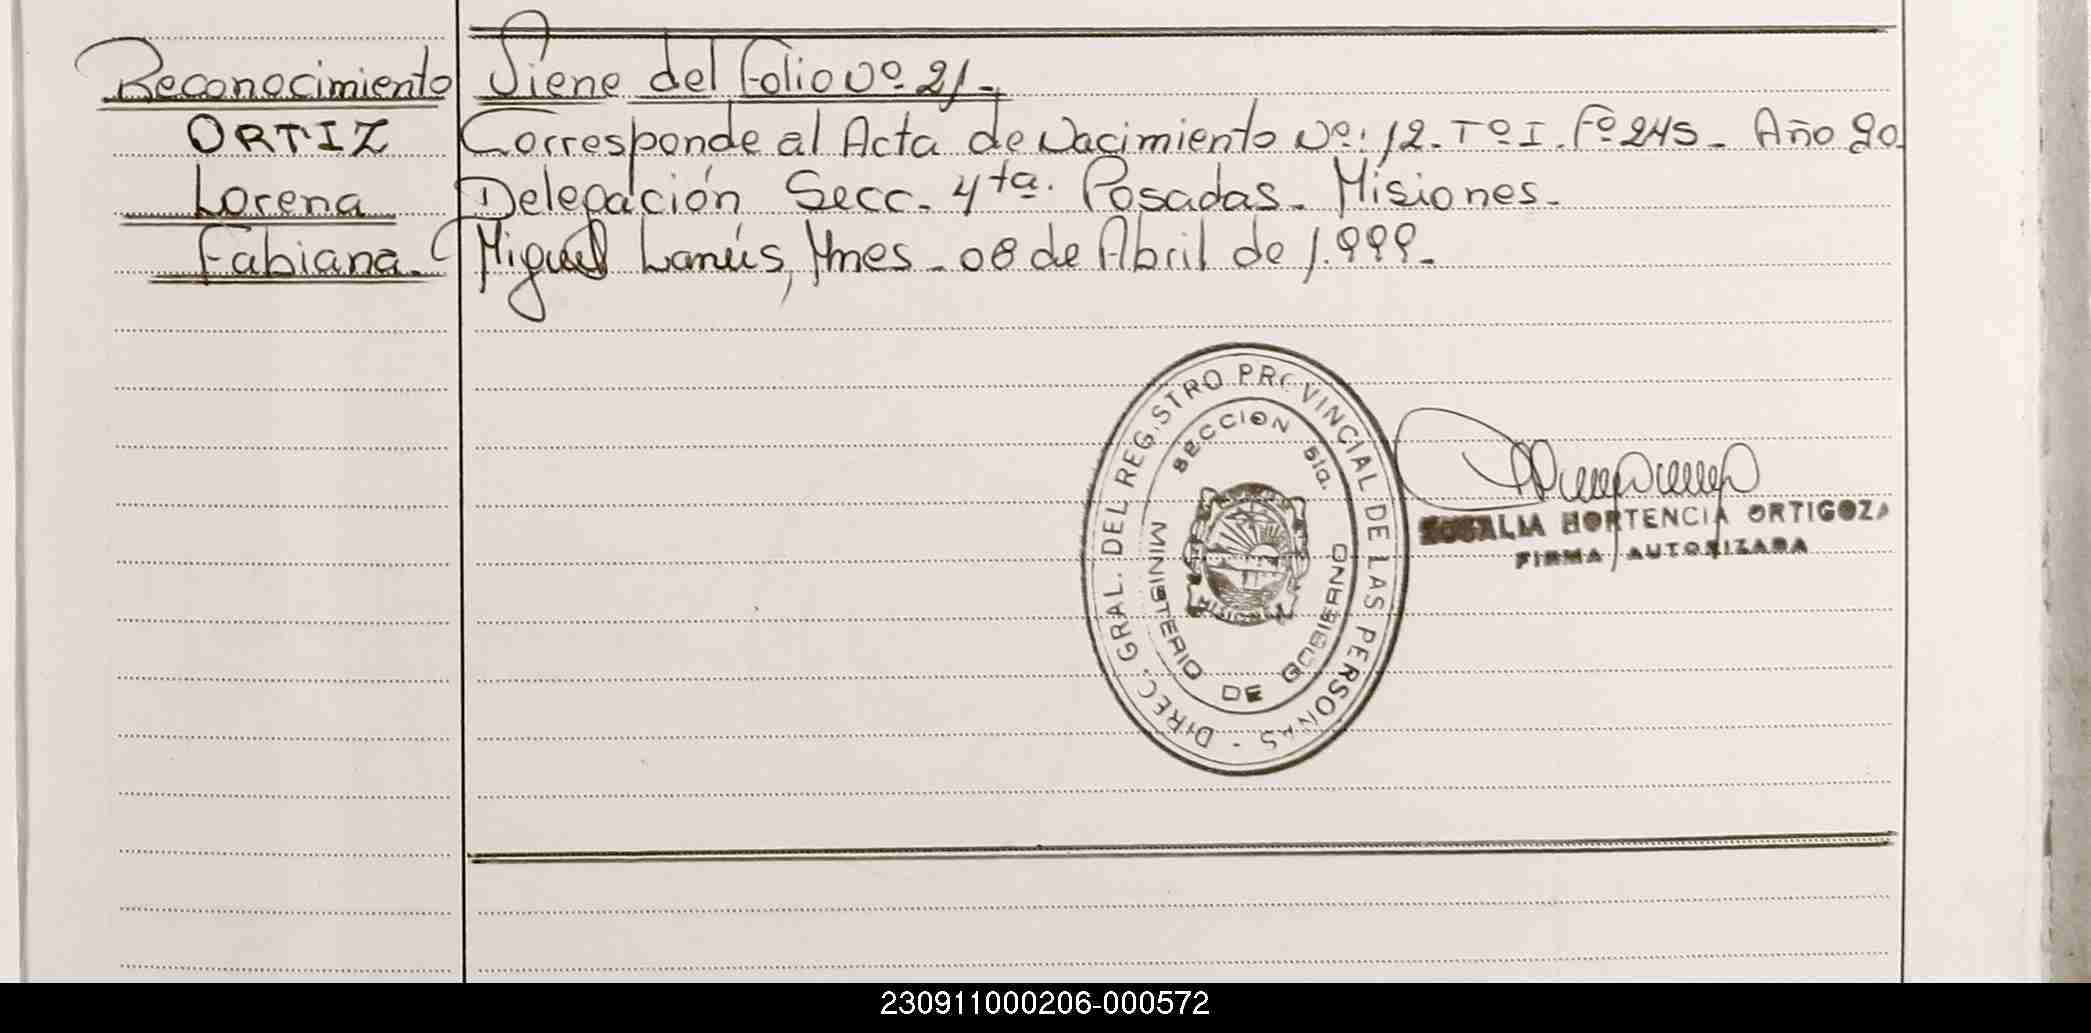 Reconocimiento
ORTIZ
Lorena
Fabiana.
Viene del Folio Nº. 21.
Corresponde al Acta de Nacimiento Nº: 12. Tº I. Fº 245. Año 90.
Delegación Secc. 4ta. Posadas. Misiones.
Miguel Lanús, Mnes. 08 de Abril de 1.999.
DIREC. GRAL. DEL REGISTRO PROVINCIAL DE LAS PERSONAS
SECCION 5ta.
MINISTERIO DE GOBIERNO
MISIONES
HORTENCIA ORTIGOZA
FIRMA AUTORIZADA
230911000206-000572